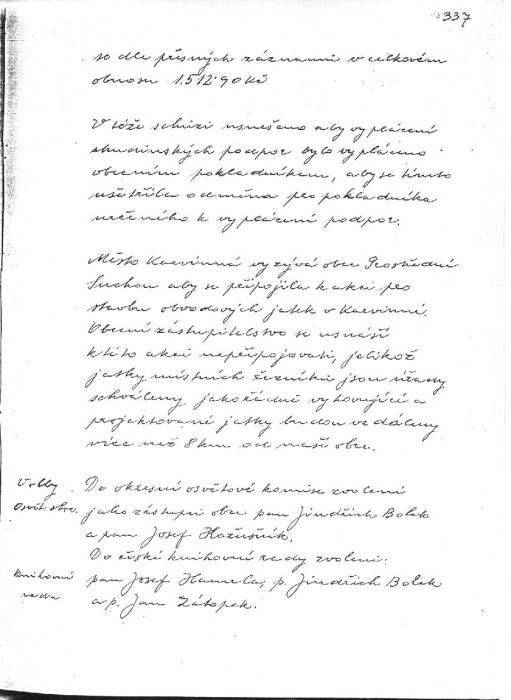 337
se dle přesných záznamů v celkovém
obnosu 1.512·90 Kč
V téže schůzi usneseno aby vyplácení
studinských podpor bylo vypláceno
obecním pokladníkem, aby se tímto
ušetřila odměna pro pokladníka
určeného k vyplácení podpor.
Město Karvinná vyzývá obec Prostřední
Suchou aby se připojila k akci pro
stavbu obvodových jatek v Karvinné.
Obecní zastupitelstvo se usnáší
k této akci nepřipojovati, jelikož
jatky místních řezníků jsou úřady
schváleny jako řádně vyhovující a
projektované jatky budou vzdáleny
více než 8 km od naší obce.
Volby Do okresní osvětové komise zvoleni
Osvět. sbor. jako zástupci obce pan Jindřich Bolek
a pan Josef
Do české knihovní rady zvoleni:
Knihovní pan Josef Hamela, p. Jindřich Bolek
rada a p. Jan Zátopek.